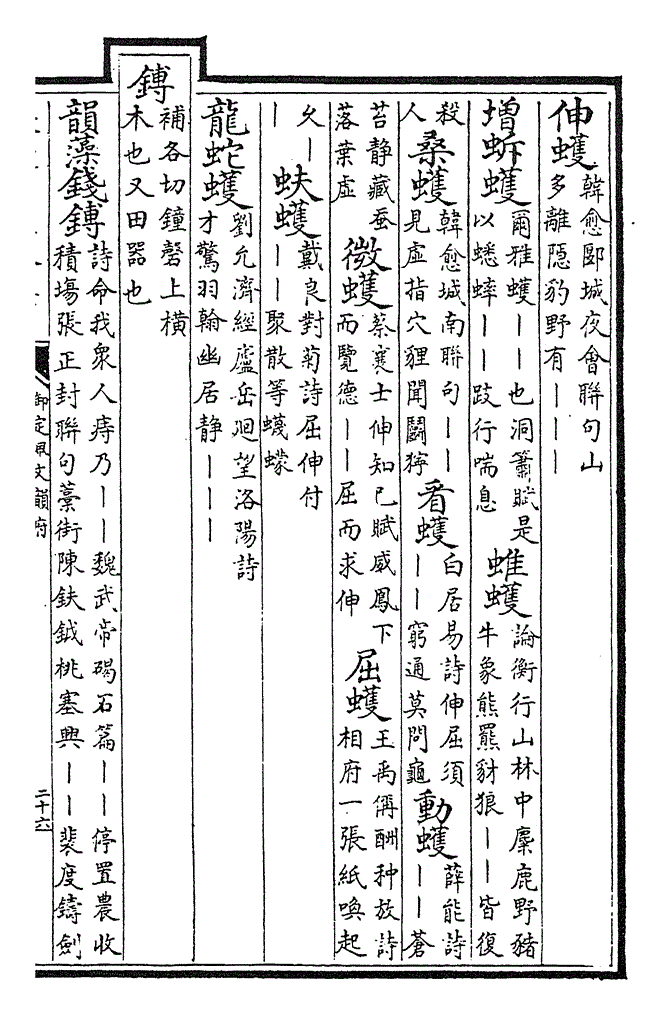 伸蠖韓愈郾城夜會聯句山
多離隱豹野有｜｜｜
增蚚蠖爾雅蠖｜｜也洞簫賦是
以蟋蟀｜｜跂行喘息
蜼蠖論衡行山林中麋鹿野豬
牛象熊羆豺狼｜｜皆復
殺
人
桑蠖韓愈城南聯句｜｜
見虛指穴貍聞鬭獰
看蠖白居易詩伸屈須
｜｜窮通莫問龜
動蠖薛能詩
｜｜蒼
苔静藏蚕
落葉虛
微蠖蔡襄士伸知己賦威鳳下
而覽德｜｜屈而求伸
屈蠖王禹偁酬种放詩
相府一張紙喚起
久｜
｜
蚨蠖戴良對菊詩屈伸付
｜｜聚散等蠛蠓
龍蛇蠖劉允濟經廬岳廻望洛陽詩
才驚羽翰幽居静｜｜｜
鎛補各切鐘磬上橫
木也又田器也
韻藻錢鎛詩命我衆人庤乃｜｜魏武帝碣石篇｜｜停置農收
積場張正封聯句藁街陳鈇鉞桃塞興｜｜裴度鑄劍
御定佩文韻府
二十六